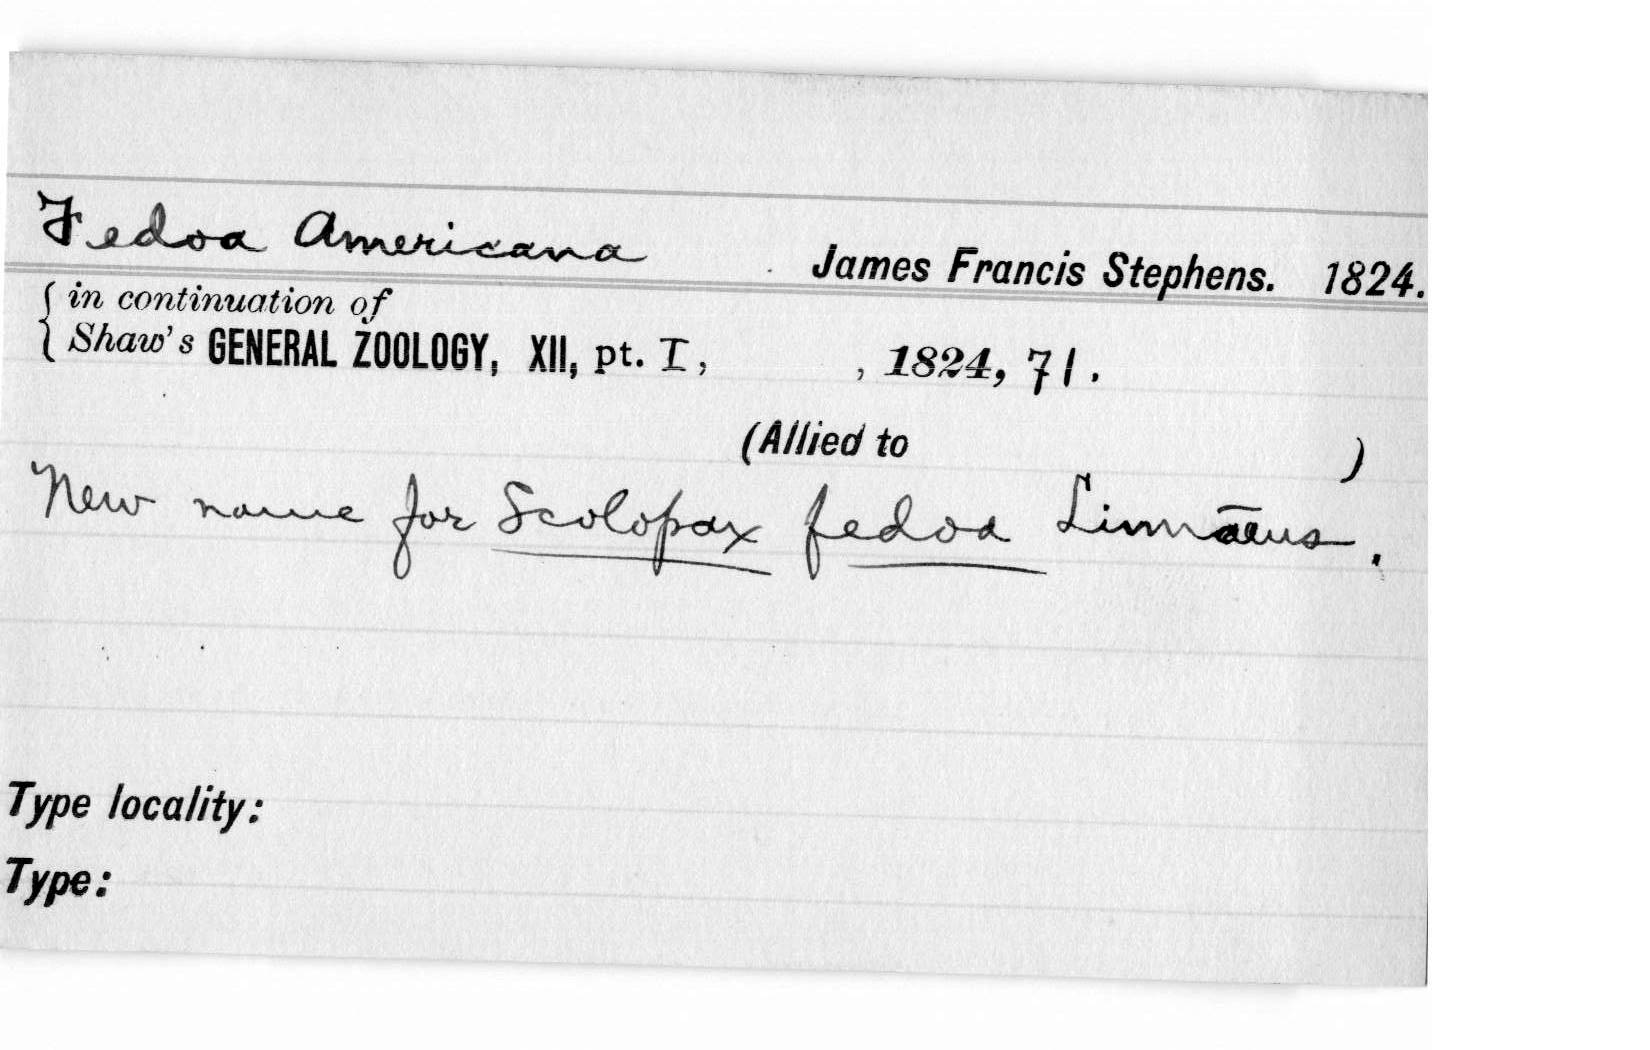 Fedoa Americana James Francis Stephens. 1824.
in continuation of
Shaw's GENERAL ZOOLOGY, XII, pt. I, , 1824, 71.
(Allied to )
New name for Scolopax fedoa Linnaeus.
Type locality:
Type: